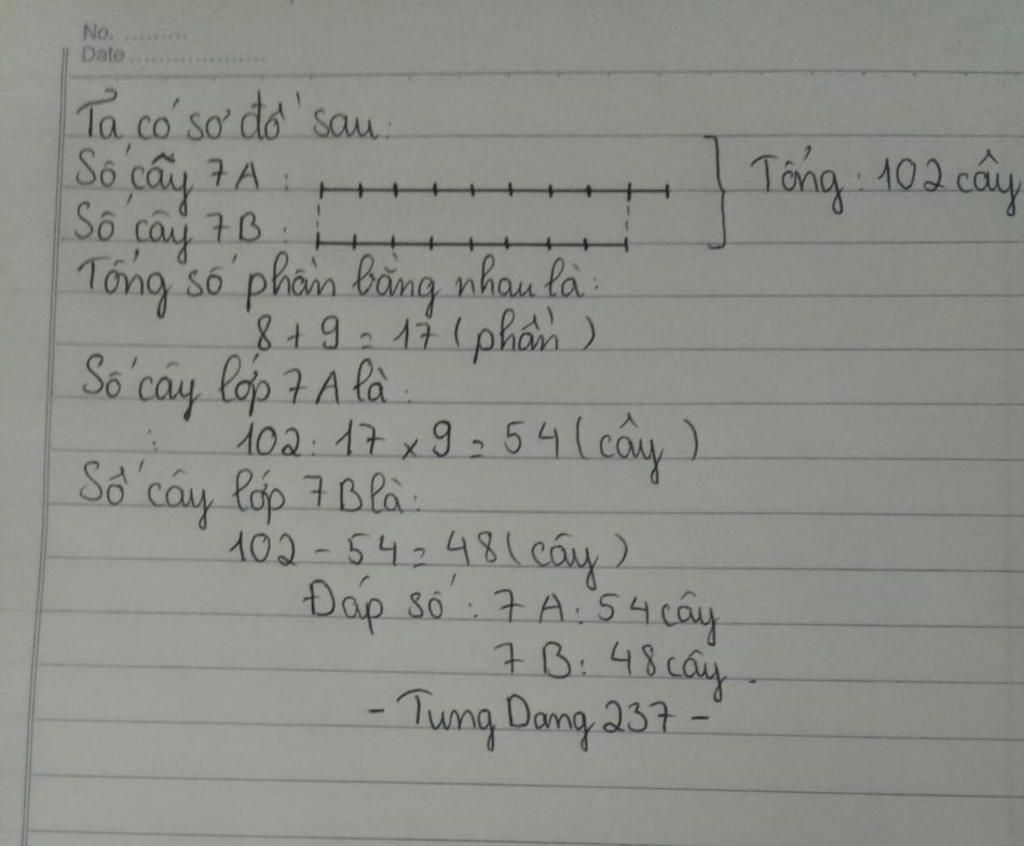 No. .........
Date ...................
Ta có sơ đồ sau:
Số cây 7A :
Tổng: 102 cây
Số cây 7B :
Tổng số phần bằng nhau là:
8 + 9 = 17 (phần)
Số cây lớp 7A là:
: 102 : 17 x 9 = 54 (cây)
Số cây lớp 7B là:
102 - 54 = 48 (cây)
Đáp số : 7A: 54 cây
7B: 48 cây.
- Tung Dang 237 -